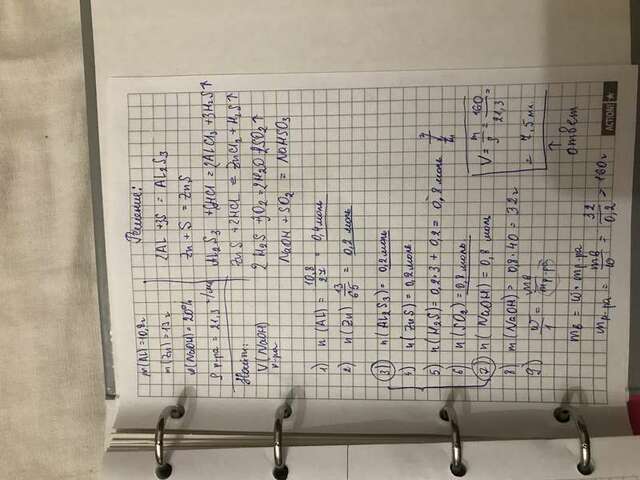 Решение:
m(Al)=10,8г
m(Zn)=13 г
w(NaOH)=20%
ρ р-ра = 21,3 г/мл
Найти:
V(NaOH)
р-ра
2Al + 3S = Al2S3
Zn + S = ZnS
Al2S3 + 6HCl = 2AlCl3 + 3H2S↑
ZnS + 2HCl = ZnCl2 + H2S↑
2H2S + 3O2 = 2H2O + 2SO2↑
NaOH + SO2 = NaHSO3
1) n(Al) = 10,8/27 = 0,4 моль
2) n(Zn) 13/65 = 0,2 моль
3) n(Al2S3) = 0,2 моль
4) n(ZnS) = 0,2 моль.
5) n(H2S) = 0,2·3 + 0,2 = 0,8 моль
6) n(SO2) = 0,8 моль
7) n(NaOH) = 0,8 моль
8) m(NaOH) = 0,8·40 = 32 г
9) w/1 = mв/mр-ра
mв = w·mр-ра
mр-ра = mв/w = 32/0,2 = 160 г
V = m/ρ = 160/21,3 =
= 7,5 мл
↑
ответ
ACTION!